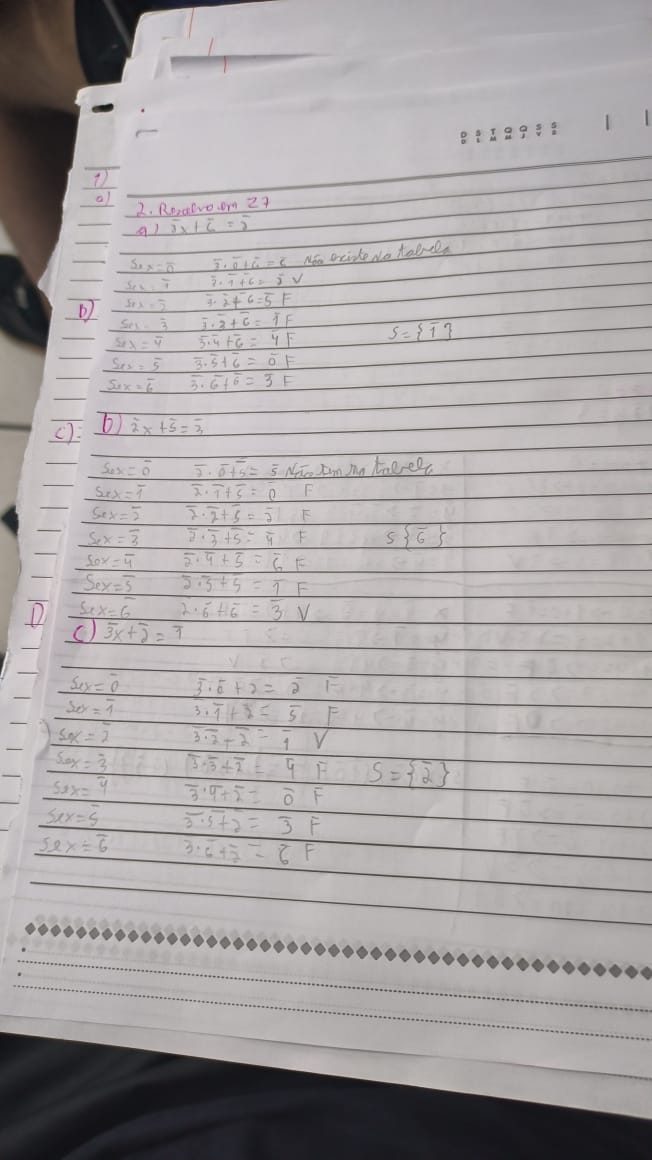 D S T Q Q S S
D L M M J V S
1)
a)
2. Resolva em Z7
a) 3̅x + 6̅ = 2̅
Se x = 0̅ 3̅·0̅+6̅ = 6̅ Não existe na tabela
Se x = 1̅ 3̅·1̅+6̅ = 2̅ V
Se x = 2̅ 3̅·2̅+6̅ = 5̅ F
b)
Se x = 3̅ 3̅·3̅+6̅ = 1̅ F
Se x = 4̅ 3̅·4̅+6̅ = 4̅ F S = {1̅}
Se x = 5̅ 3̅·5̅+6̅ = 0̅ F
Se x = 6̅ 3̅·6̅+6̅ = 3̅ F
c)
b) 2̅x + 5̅ = 3̅
Se x = 0̅ 2̅·0̅+5̅ = 5̅ Não tem na tabela
Se x = 1̅ 2̅·1̅+5̅ = 0̅ F
Se x = 2̅ 2̅·2̅+5̅ = 2̅ F
Se x = 3̅ 2̅·3̅+5̅ = 4̅ F S {6̅}
Se x = 4̅ 2̅·4̅+5̅ = 6̅ F
Se x = 5̅ 2̅·5̅+5̅ = 1̅ F
D
Se x = 6̅ 2̅·6̅+6̅ = 3̅ V
c) 3̅x + 2̅ = 1̅
Se x = 0̅ 3̅·0̅+2 = 2̅ F
Se x = 1̅ 3·1̅+2̅ = 5̅ F
Se x = 2̅ 3̅·2̅+2̅ = 1̅ V
Se x = 3̅ 3̅·3̅+2̅ = 4̅ F S = {2̅}
Se x = 4̅ 3̅·4̅+2̅ = 0̅ F
Se x = 5̅ 3̅·5̅+2̅ = 3̅ F
Se x = 6̅ 3·6̅+2̅ = 6̅ F